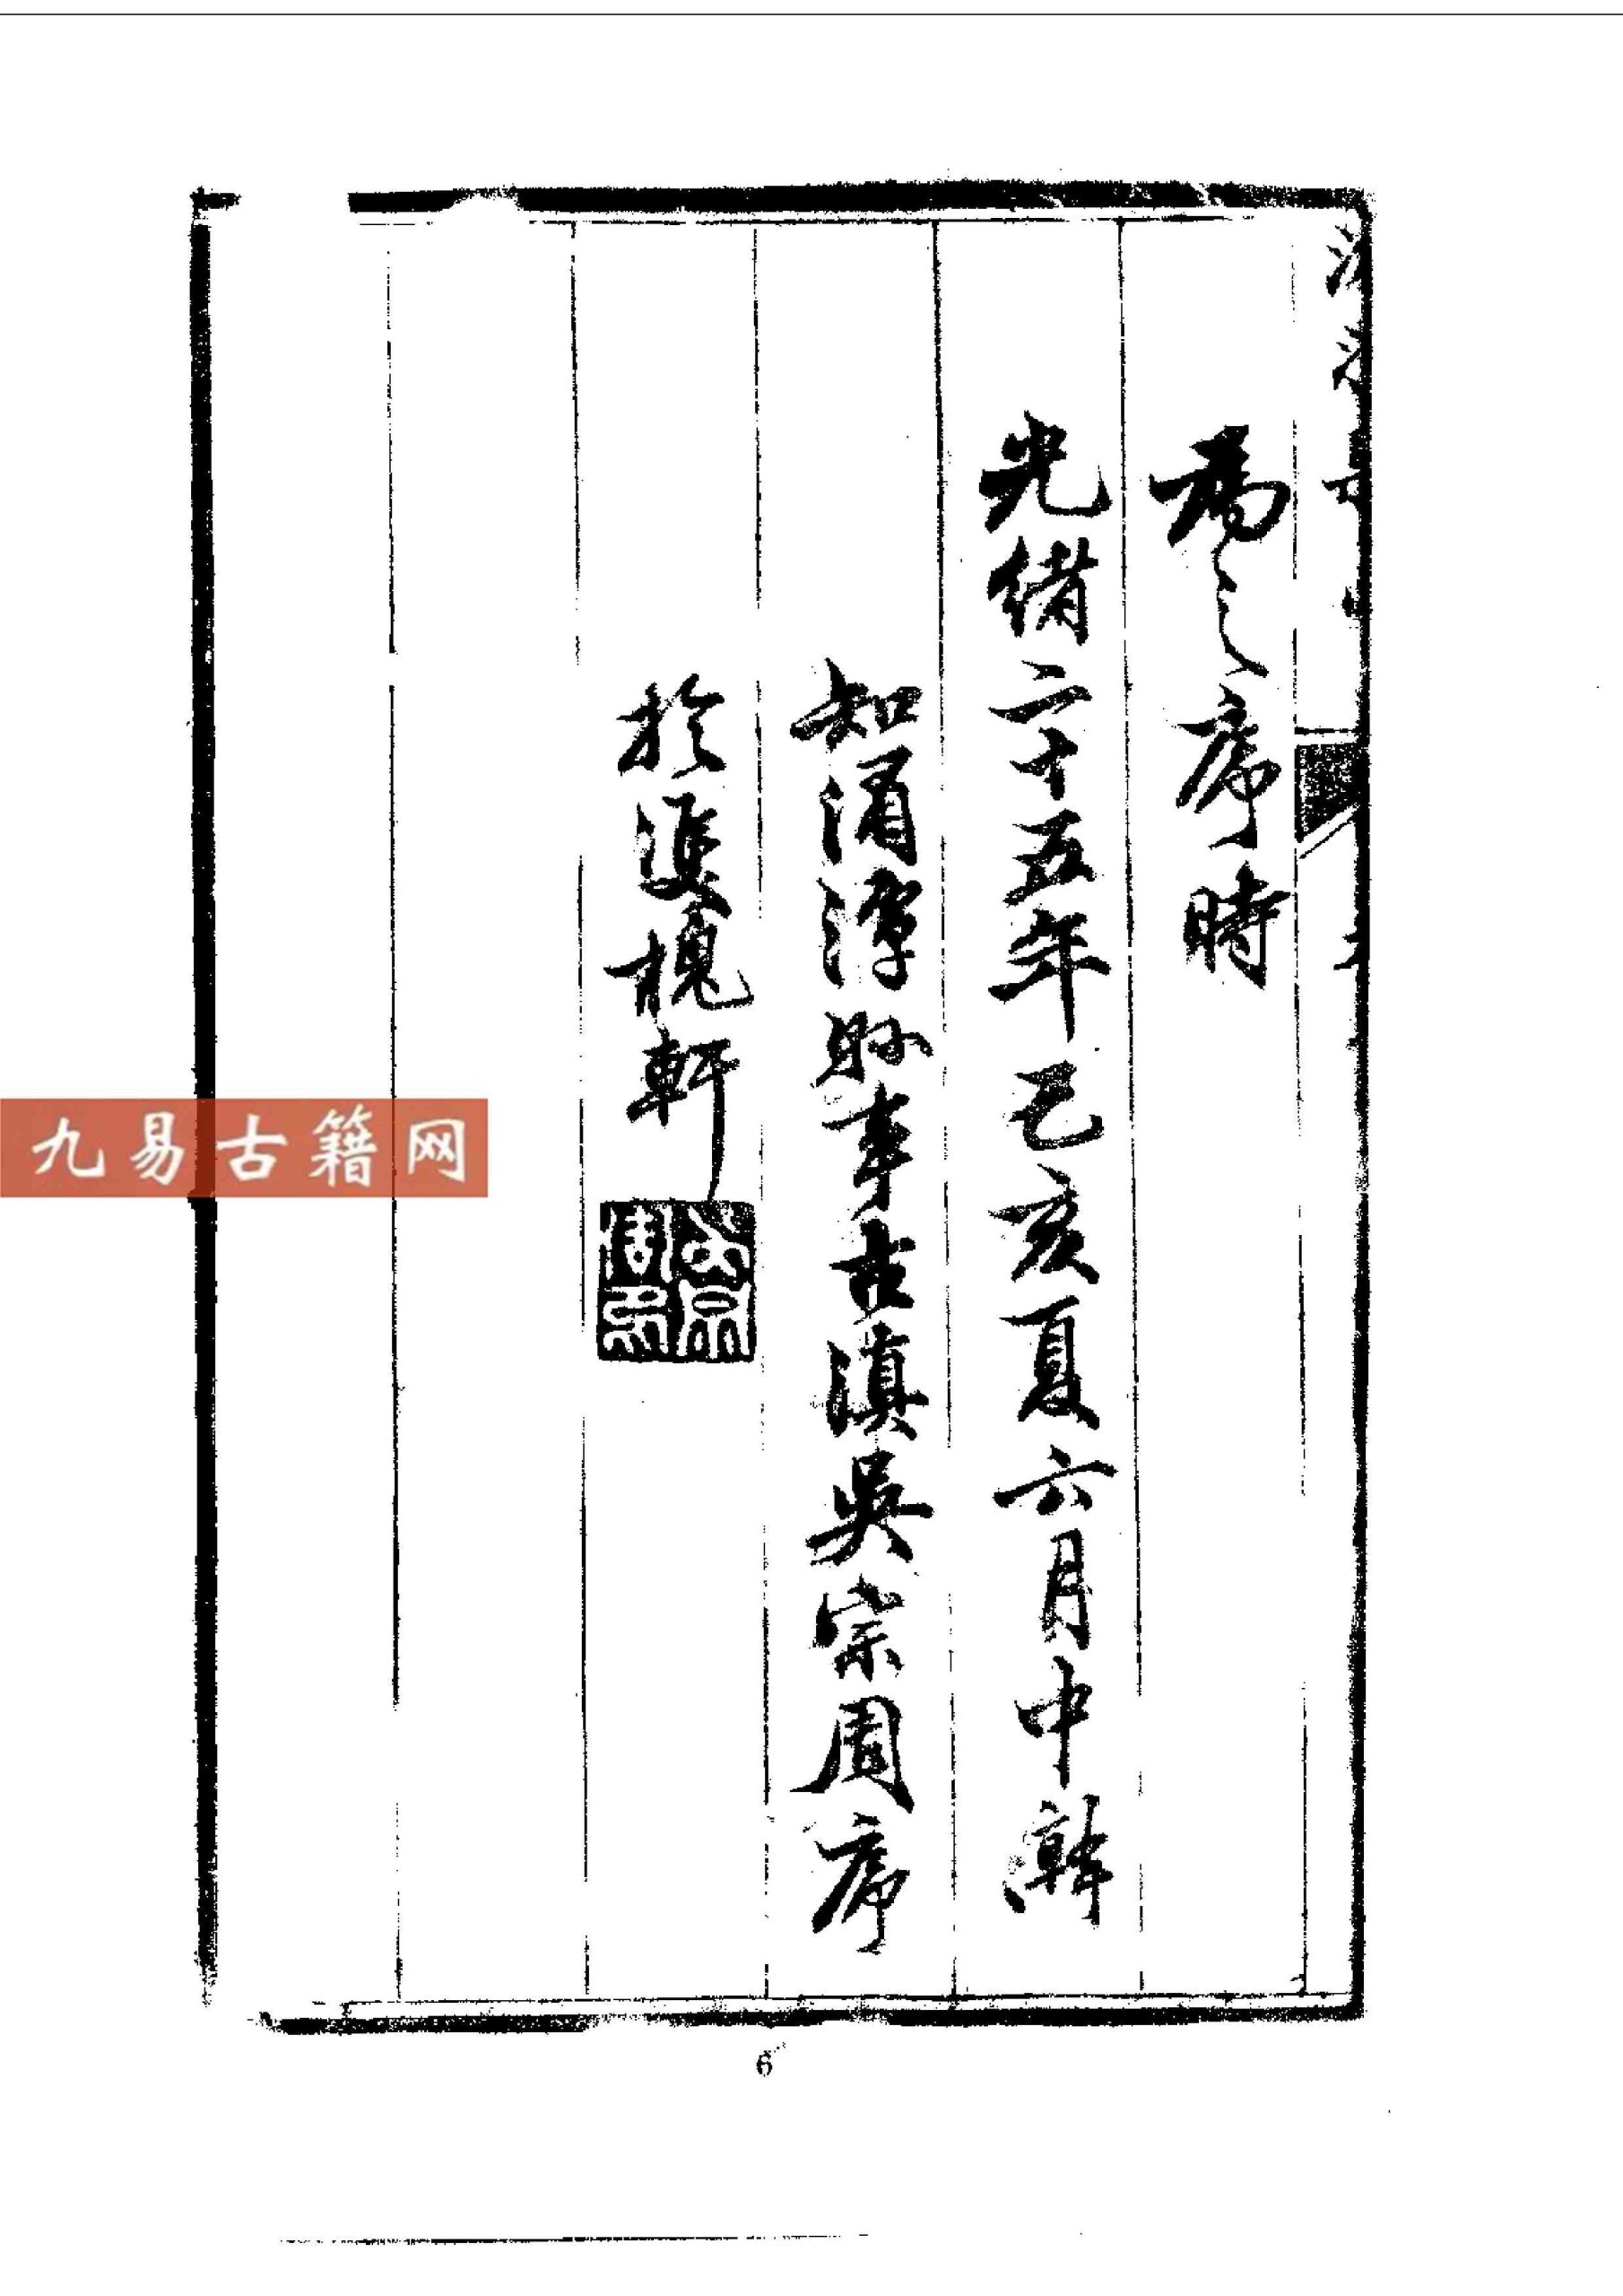 為之序時
光緒二十五年己亥夏六月中澣
知湄潭縣事古滇吳宗周序
於雙槐軒
九易古籍网
6